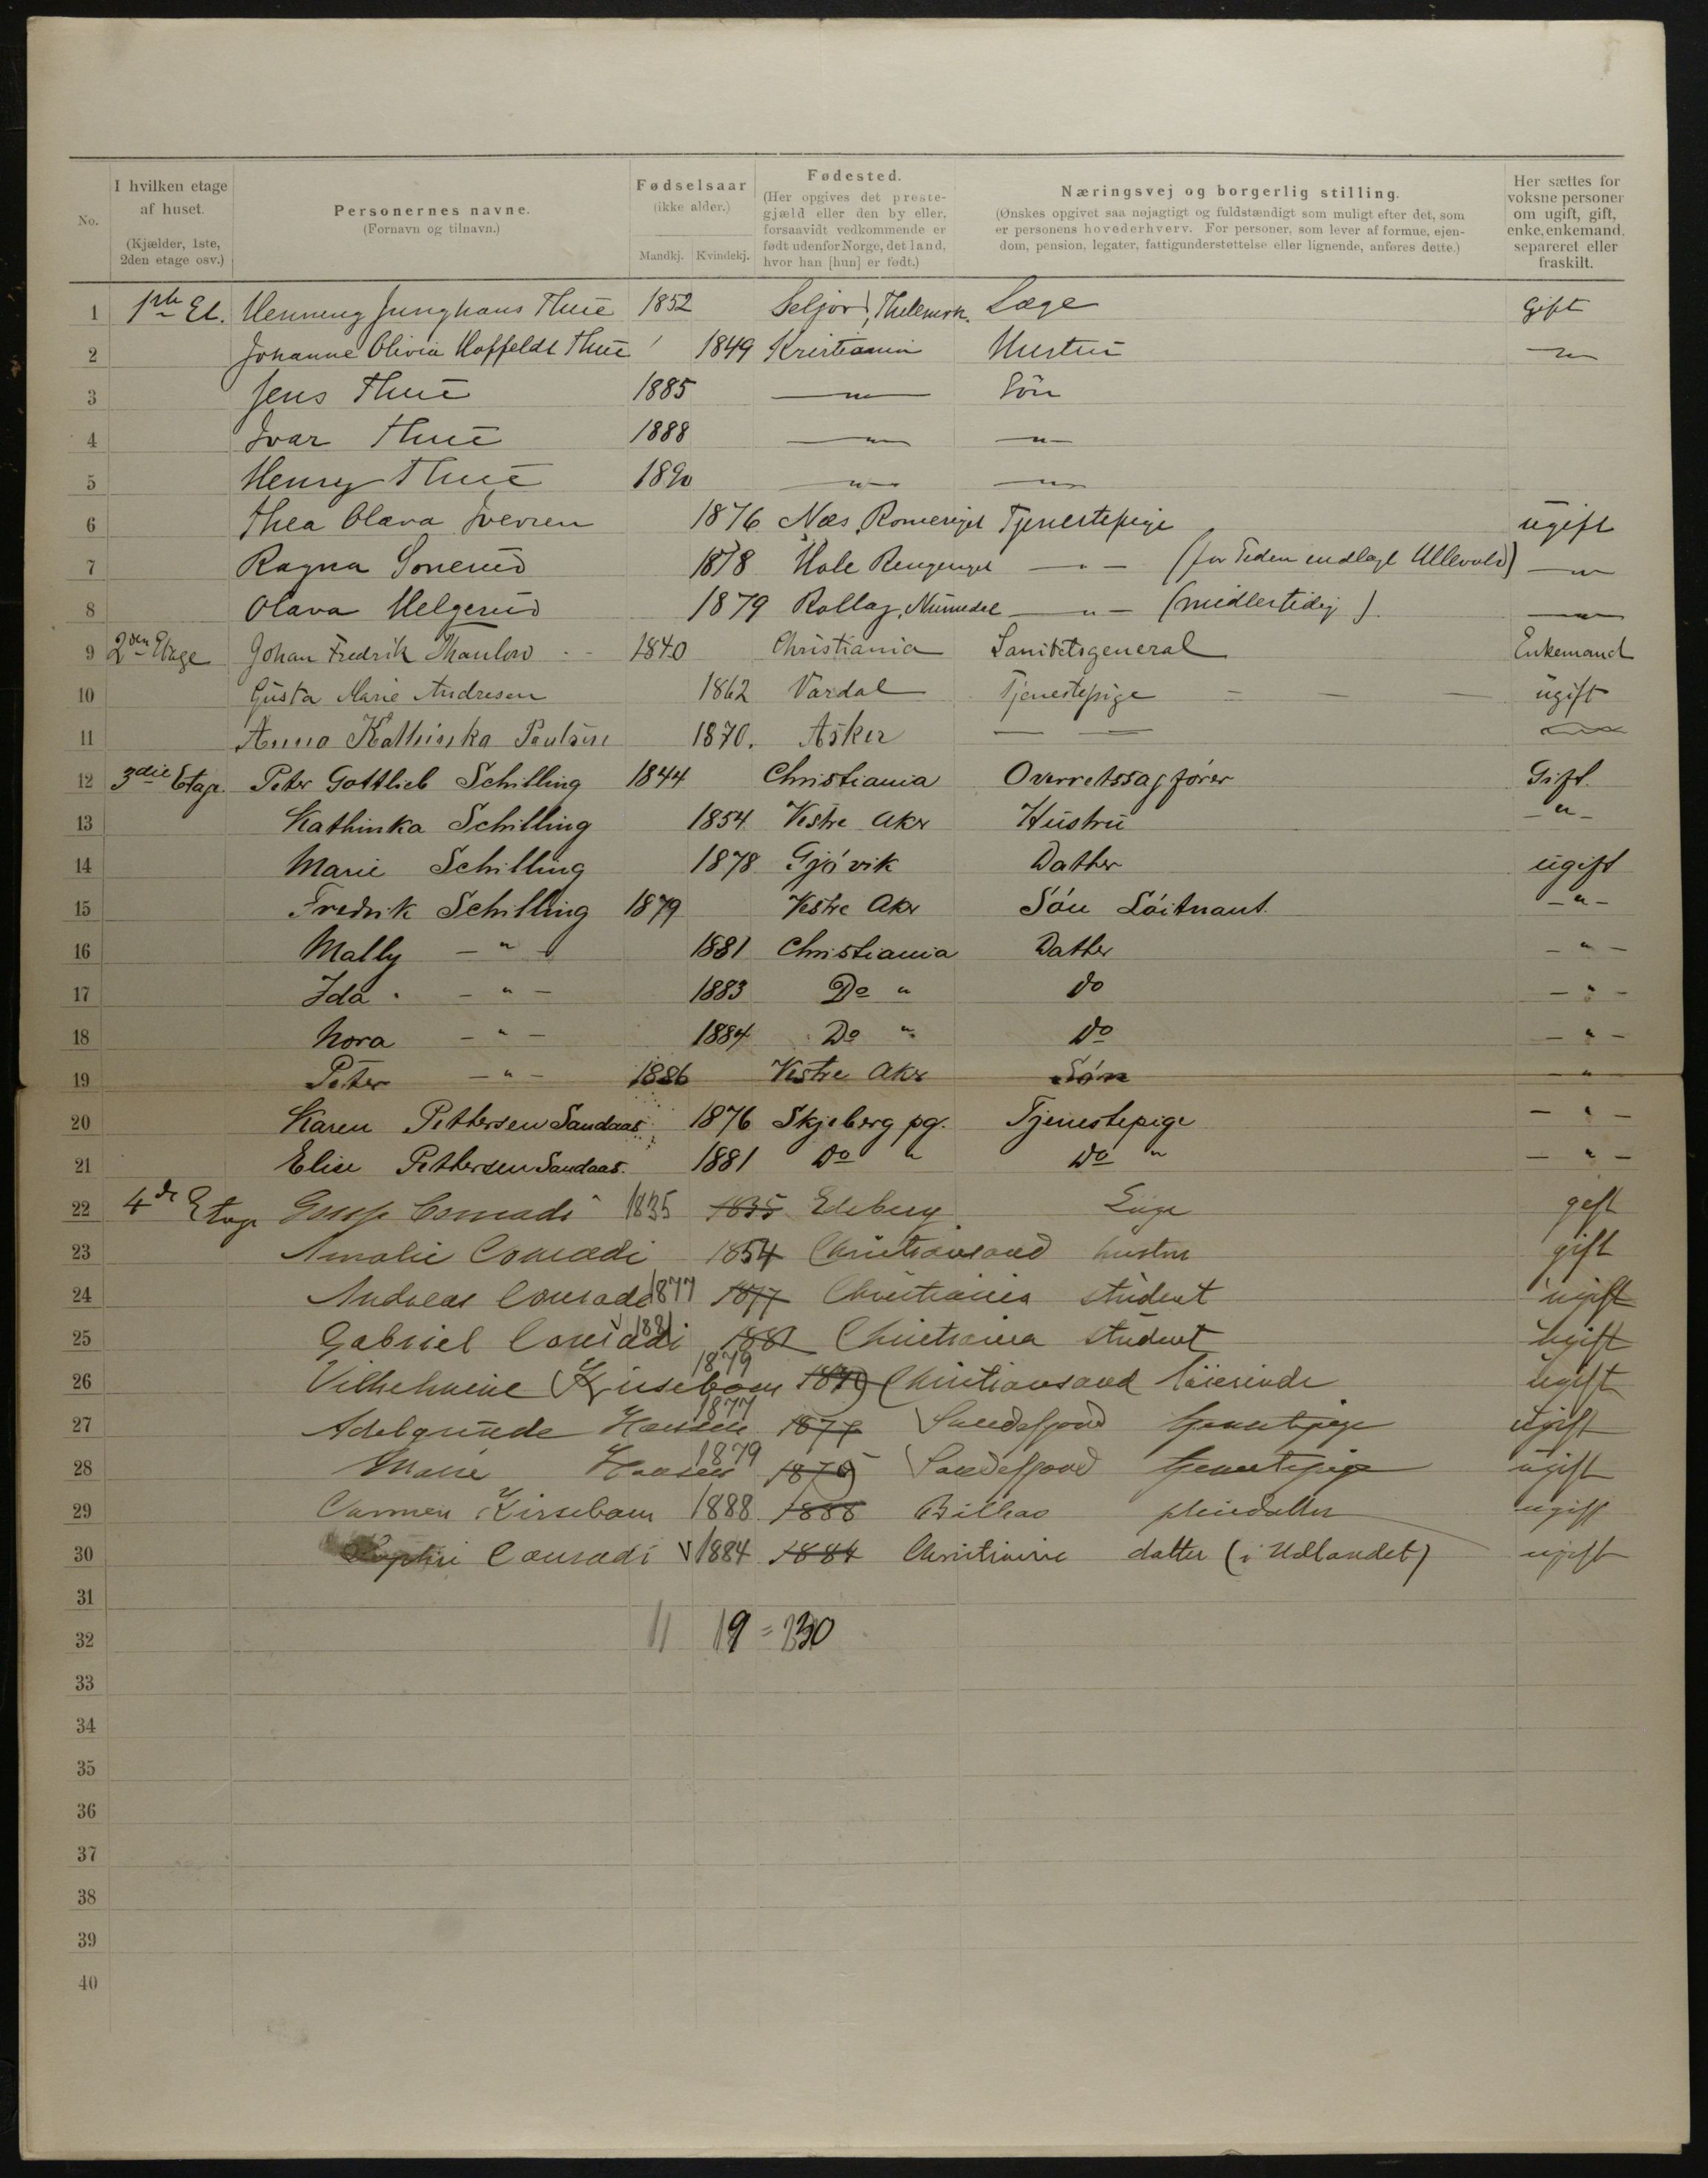 No.
I hvilken etage af huset. (Kjælder, 1ste, 2den etage osv.)
Personernes navne. (Fornavn og tilnavn.)
Fødselsaar (ikke alder.) Mandkj. Kvindekj.
Fødested. (Her opgives det prestegjæld eller den by eller, forsaavidt vedkommende er født udenfor Norge, det land, hvor han [hun] er født.)
Næringsvej og borgerlig stilling. (Ønskes opgivet saa nøjagtigt og fuldstændigt som muligt efter det, som er personens hovederhverv. For personer, som lever af formue, ejendom, pension, legater, fattigunderstøttelse eller lignende, anføres dette.)
Her sættes for voksne personer om ugift, gift, enke, enkemand, separeret eller fraskilt.
1 1ste Et. Henning Junghans Thue 1852 Seljord, Thelemrk. Læge Gift
2 Johanne Olivia Hoffeldt Thue 1849 Kristiania Hustru —"—
3 Jens Thue 1885 —"— Sön
4 Ivar Thue 1888 —"— —"—
5 Henry Thue 1890 —"— —"—
6 Thea Olava Iversen 1876 Næs, Romeriget Tjenestepige ugift
7 Ragna Sonerud 1878 Hole Ringeriget —"— (for Tiden indlagt Ullevold) —"—
8 Olava Helgerud 1879 Rollag, Numedal —"— (midlertidig) —"—
9 2den Etage Johan Fredrik Thaulow 1840 Christiania Sanitetsgeneral Enkemand
10 Gusta Marie Andresen 1862 Vardal Tjenestepige — — — ugift
11 Anna Kathinka Paulsen 1870. Asker — —
12 3die Etage. Peter Gottlieb Schilling 1844 Christiania Overretssagfører Gift.
13 Kathinka Schilling 1854 Vestre Aker Hustru —"—
14 Marie Schilling 1878 Gjøvik Datter ugift
15 Fredrik Schilling 1879 Vestre Aker Søn Løitnant. —"—
16 Mally —"— 1881 Christiania Datter —"—
17 Ida —"— 1883 Do " do —"—
18 Nora —"— 1884 Do " Do —"—
19 Peter —"— 1886 Vestre Aker Søn —"—
20 Karen Pettersen Sandaas 1876 Skjeberg pg. Tjenestepige —"—
21 Elise Pettersen Sandaas. 1881 Do " Do " —"—
22 4de Etage Conradi 1835 1835 gift
23 Amalie Conradi 1854 Christiansand hustru gift
24 Andreas Conradi 1877 1877 Christiania student ugift
25 Gabriel Conradi 1881 1881 Christiania student ugift
26 Vilhelmine Kirsebom 1879 Christiansand lærerinde ugift
27 Adelgunde Hansen 1877 1877 Sandefjord tjenestepige ugift
28 Marie Hansen 1879 1879 Sandefjord tjenestepige ugift
29 Carmen Kirsebom 1888 1888 Bilbao pleiedatter ugift
30 Sophie Conradi 1884 1884 Christiania datter (i Udlandet) ugift
31
32 11 19 = 30
33
34
35
36
37
38
39
40